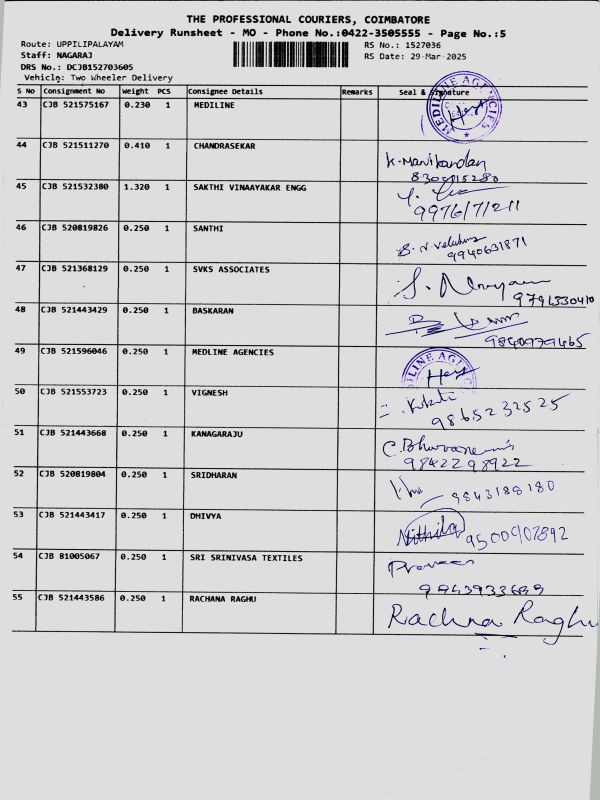 THE PROFESSIONAL COURIERS, COIMBATORE
Delivery Runsheet - MO - Phone No.:0422-3505555 - Page No.:5
Route: UPPILIPALAYAM RS No.: 1527036
Staff: NAGARAJ RS Date: 29-Mar-2025
DRS No.: DCJB152703605
Vehicle: Two Wheeler Delivery
S No Consignment No Weight PCS Consignee Details Remarks Seal & Signature
43 CJB 521575167 0.230 1 MEDILINE MEDILINE AGENCIES
44 CJB 521511270 0.410 1 CHANDRASEKAR K. Manikandan
45 CJB 521532380 1.320 1 SAKTHI VINAAYAKAR ENGG
9976171211
46 CJB 520819826 0.250 1 SANTHI
9940631871
47 CJB 521368129 0.250 1 SVKS ASSOCIATES
9791330410
48 CJB 521443429 0.250 1 BASKARAN
9840979465
49 CJB 521596046 0.250 1 MEDLINE AGENCIES
50 CJB 521553723 0.250 1 VIGNESH
9865232525
51 CJB 521443668 0.250 1 KANAGARAJU
9842298922
52 CJB 520819804 0.250 1 SRIDHARAN
9843188180
53 CJB 521443417 0.250 1 DHIVYA Nithila
54 CJB 81005067 0.250 1 SRI SRINIVASA TEXTILES Praveen
55 CJB 521443586 0.250 1 RACHANA RAGHU Rachna Raghu